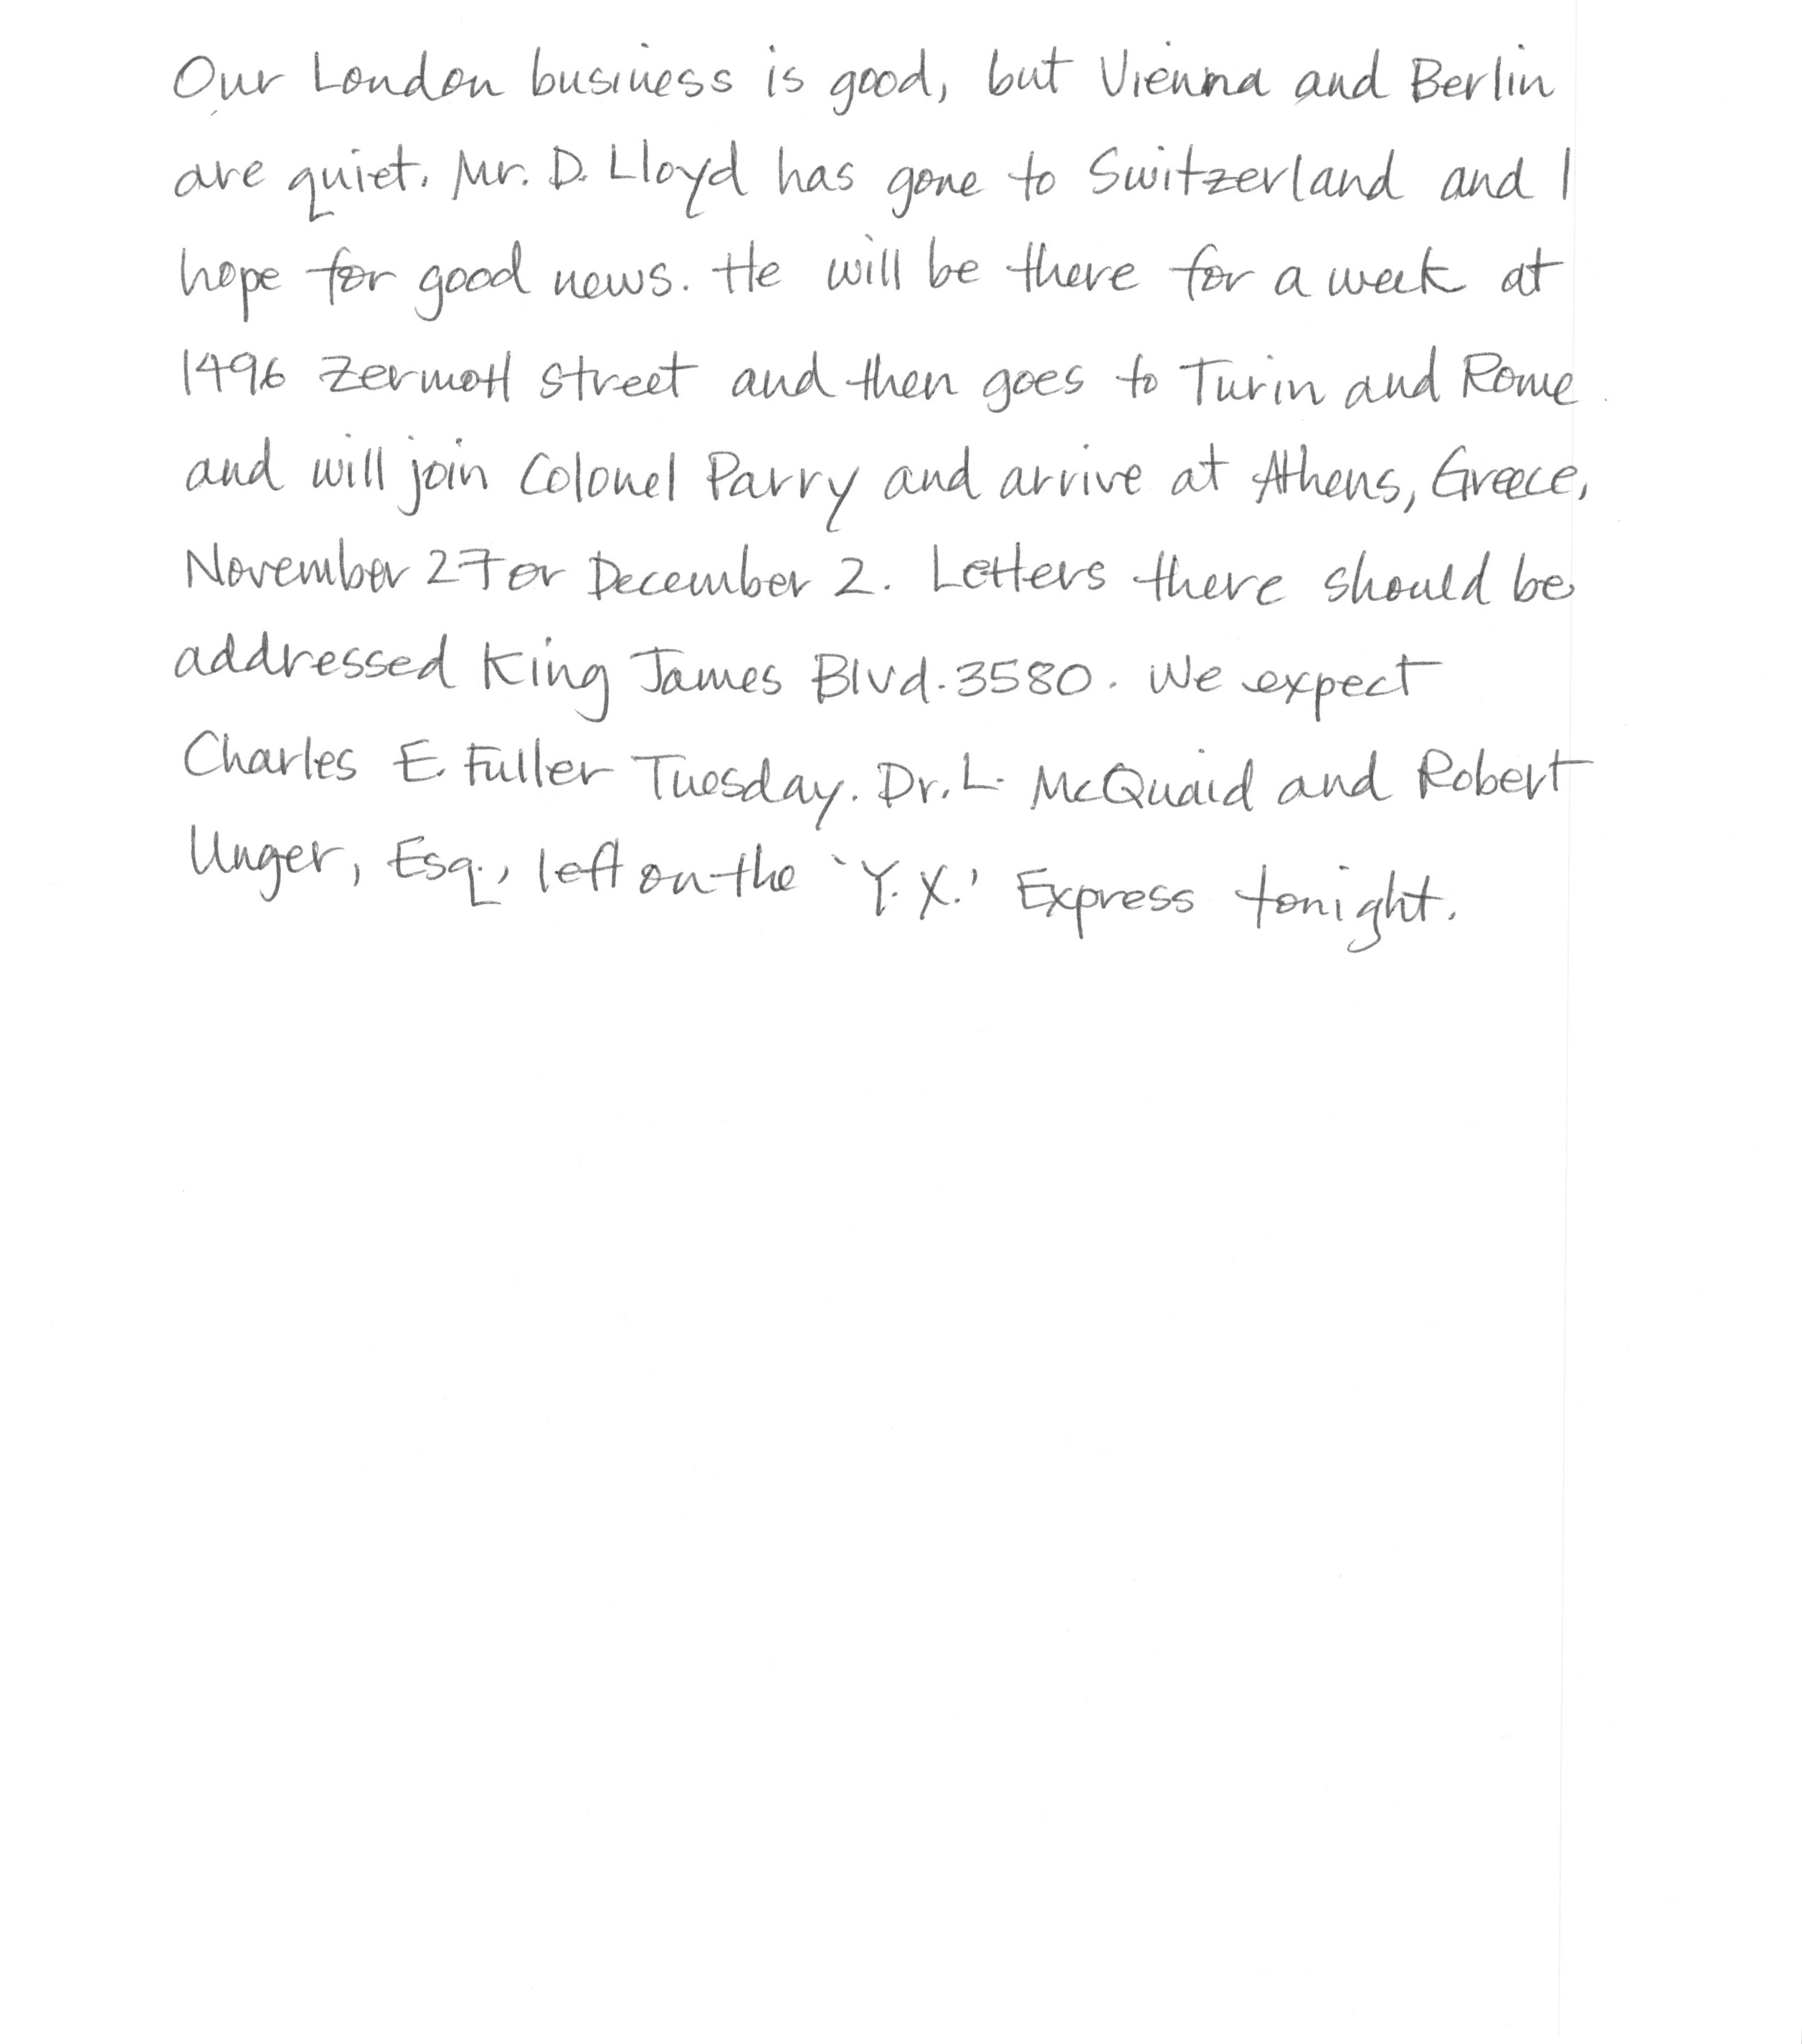 Our London business is good, but Vienna and Berlin
are quiet. Mr. D. Lloyd has gone to Switzerland and I
hope for good news. He will be there for a week at
1496 Zermott Street and then goes to Turin and Rome
and will join Colonel Parry and arrive at Athens, Greece,
November 27 or December 2. Letters there should be
addressed King James Blvd. 3580. We expect
Charles E. Fuller Tuesday. Dr. L. McQuaid and Robert
Unger, Esq., left on the 'Y.X.' Express tonight.